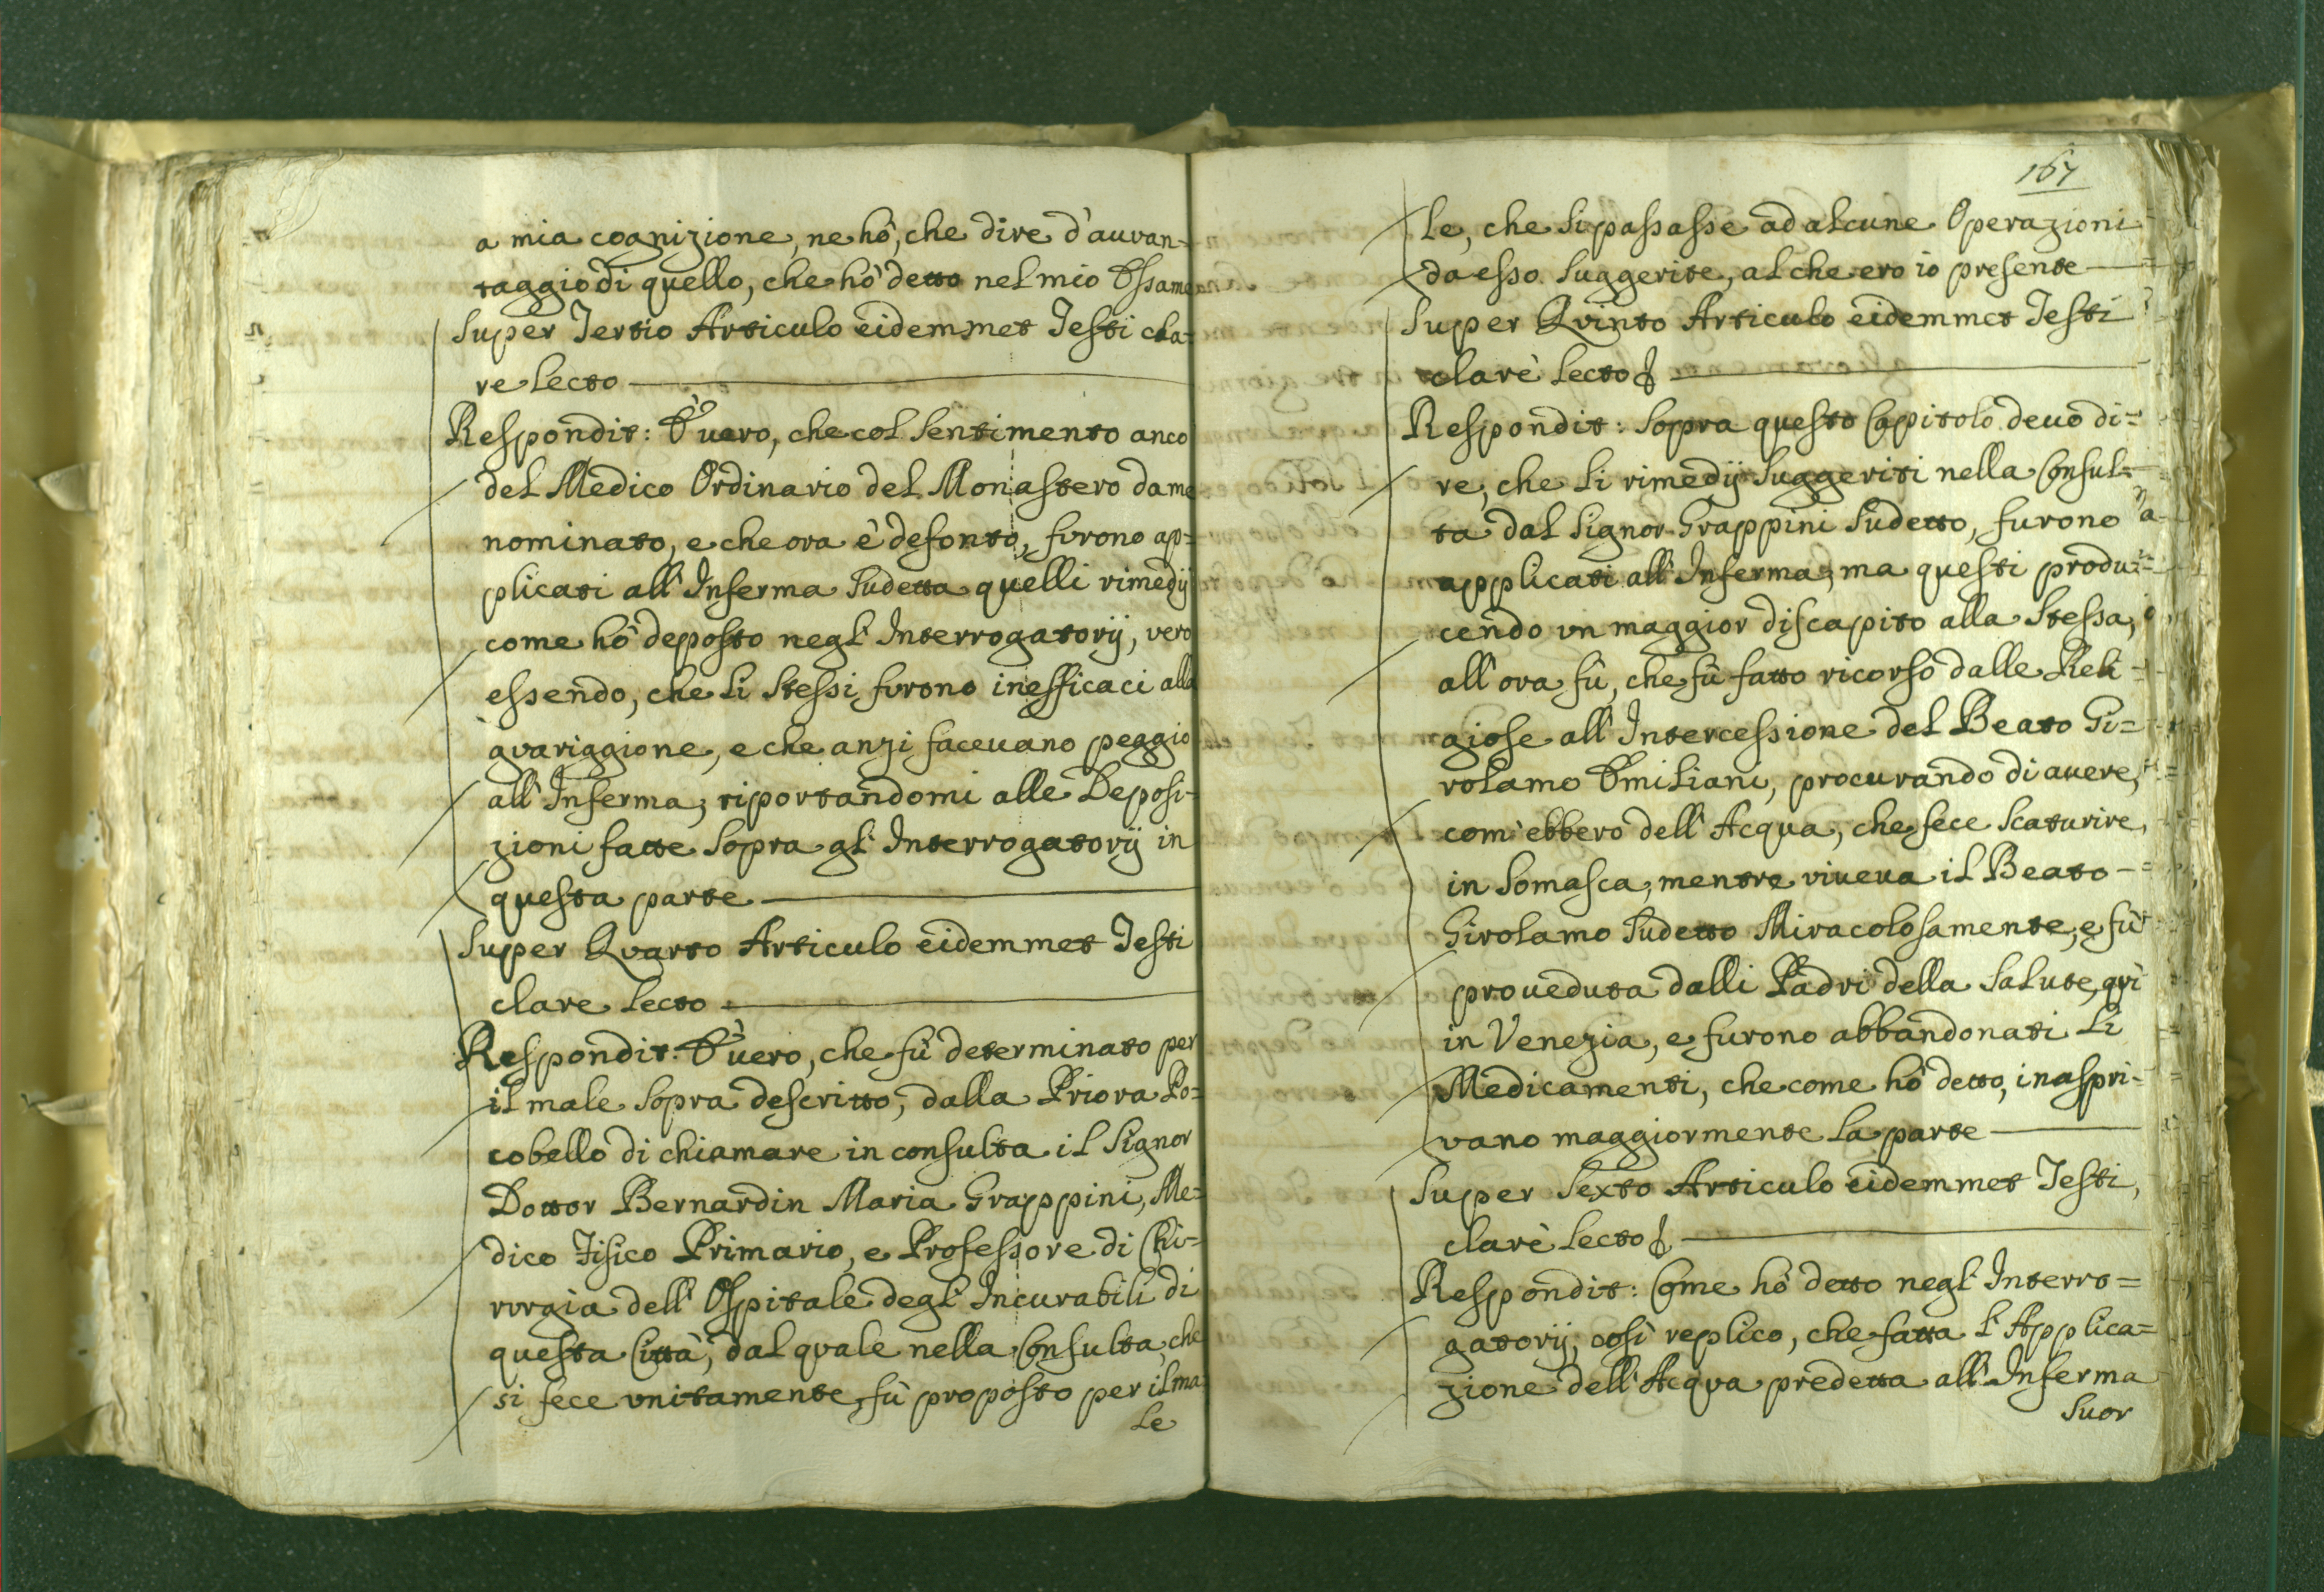 a mia cognizione, ne hò, che dire d'auvan-
taggio di quello, che hò detto nel mio Essame
Super Tertio Articulo eidemmet Testi cla-
re lecto
Respondit: È uero, che col sentimento anco
del Medico Ordinario del Monastero da me
nominato, e che ora è defonto, furono ap=
plicati all'Inferma sudetta quelli rimedij
come hò deposto negl'Interrogatorij, vero
essendo, che li stessi furono inefficaci alla
gvariggione, e che anzi faceuano peggio
all'Inferma; riportandomi alle Deposi-
zioni fatte sopra gl'Interrogatorij in
questa parte
Super Qvarto Articulo eidemmet Testi
clare lecto
Respondit: È uero, che fù determinato per
il male sopra descritto, dalla Priora Po=
cobello di chiamare in consulta il Signor
Dottor Bernardin Maria Grappini, Me=
dico Fisico Primario, e Professore di Chi=
rvrgia dell'Ospitale degl'Incurabili di
questa Città, dal qvale nella Consulta, che
si fece vnitamente, fù proposto per il ma-
le
167
le, che si passasse ad alcune Operazioni
da esso suggerite, al che ero io presente
Super Qvinto Articulo eidemmet Testi
clarè lecto
Respondit: Sopra questo Capitolo deuo di=
re, che li rimedij suggeriti nella Consul=
ta dal Signor Grappini sudetto, furono
applicati all'Inferma; ma questi produ=
cendo vn maggior discapito alla stessa,
all'ora fù, che fù fatto ricorso dalle Reli=
giose all'Intercessione del Beato Gi=
rolamo Emiliani, procurando di auere,
com'ebbero dell'Acqua, che fece scaturire,
in Somasca, mentre viueua il Beato
Girolamo sudetto Miracolosamente, e fù
proueduta dalli Padri della Salute, qvì
in Venezia, e furono abbandonati li
Medicamenti, che come hò detto, inaspri-
vano maggiormente la parte
Super Sexto Articulo eidemmet Testi,
clarè lecto
Respondit: Come hò detto negl'Interro=
gatorij, così replico, che fatta l'Applica=
zione dell'Acqva predetta all'Inferma
Suor